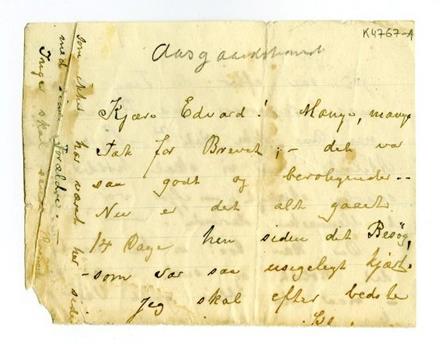 K4767-A
Aasgaardstrand
Kjære Edvard! Mange, mange
Tak for Brevet; – det var
saa godt og beroligende –
Nu er det alt gaaet
14 Dage hen siden det Besøg,
som var saa usigeligt kjært.
Jeg skal efter bedste
som ikke har været her siden
med sine Forældre.
Inge skal sende